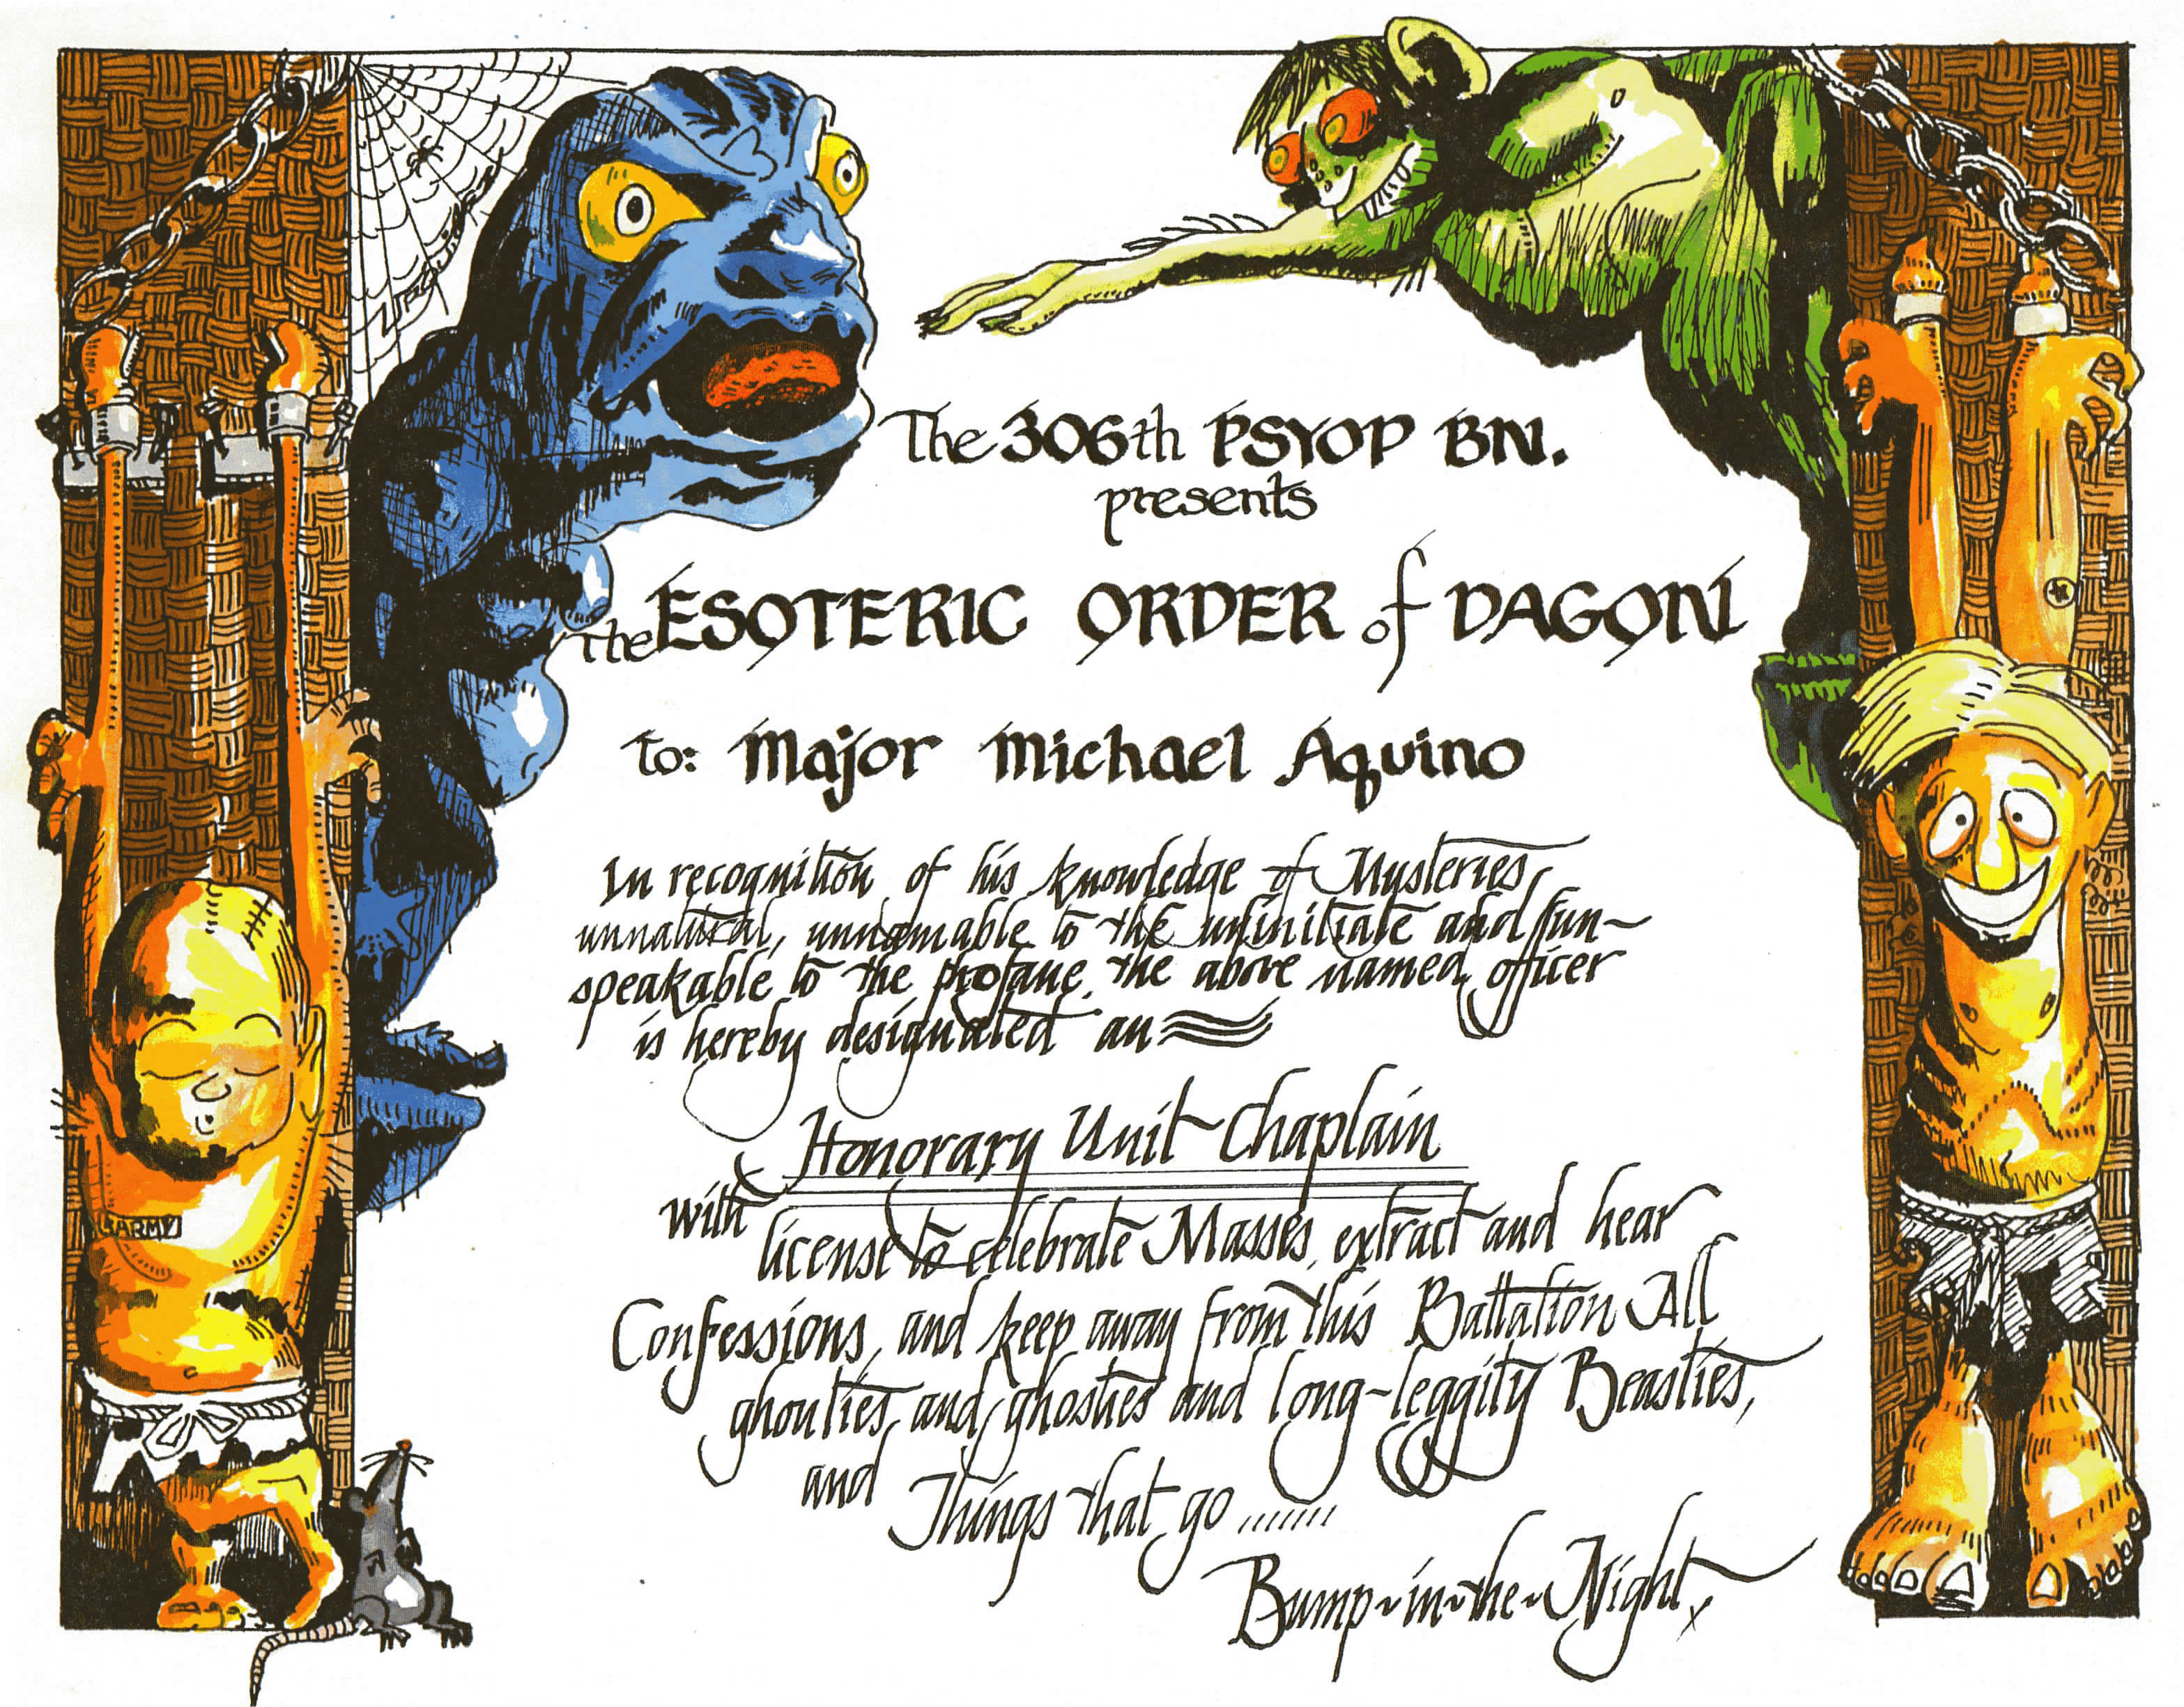 The 306th PSYOP BN.
presents
The ESOTERIC ORDER of DAGON
to: Major Michael Aquino
In recognition of his knowledge of Mysteries,
unnatural, unnamable to the uninitiate and un~
speakable to the profane, the above named officer
is hereby designated an
Honorary Unit Chaplain
with license to celebrate Masses, extract and hear
Confessions, and keep away from this Battalion All
ghoulies, and ghosties and long-leggity Beasties,
and Things that go ......
Bump~in~the~Night.
ARMY